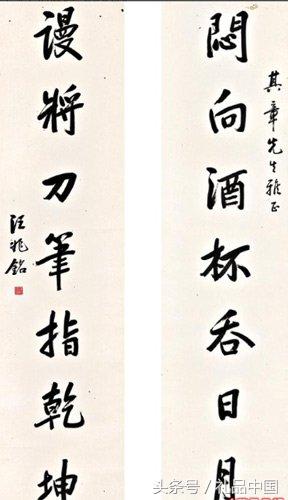 其章先生雅正
悶向酒杯吞日月
謾將刀筆指乾坤
汪兆銘
头条号 / 礼品中国